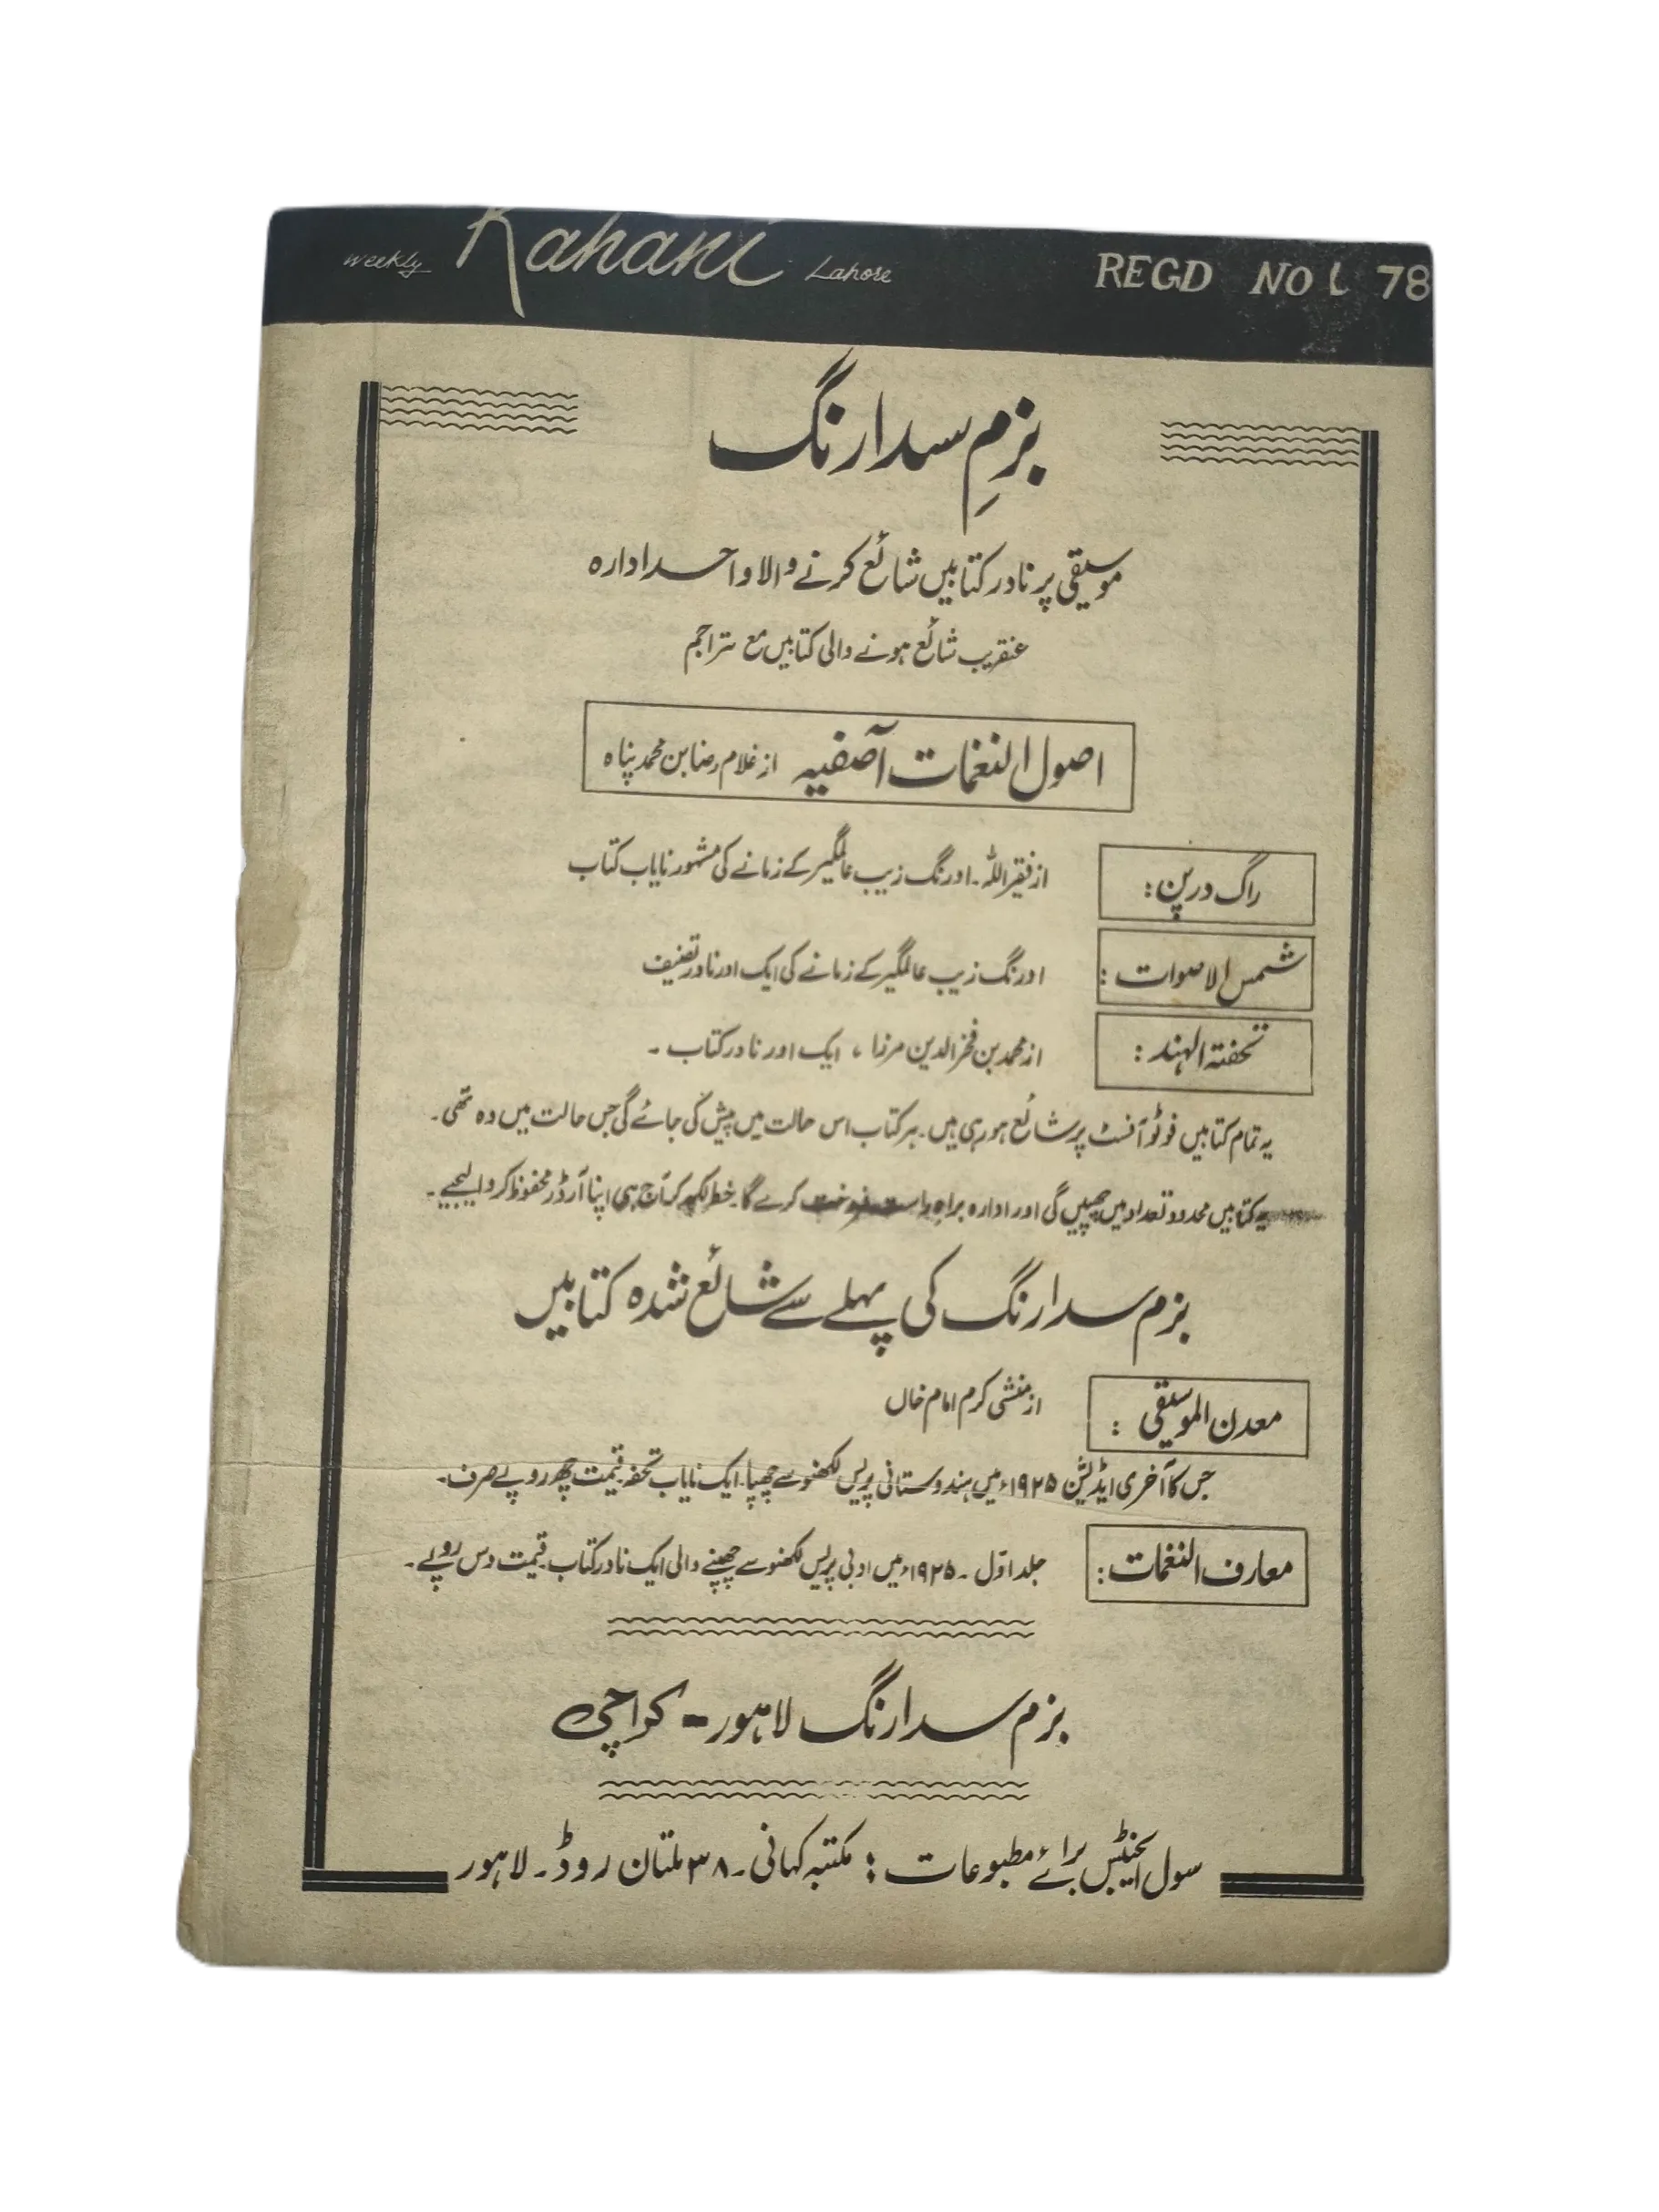 weekly Kahani Lahore REGD NO L 78
بزمِ سدارنگ
موسیقی پر نادر کتابیں شائع کرنے والا واحد ادارہ
عنقریب شائع ہونے والی کتابیں مع تراجم
اصول النغمات آصفیہ از غلام رضا بن محمد پناہ
راگ درپن: از فقیر اللہ۔ اورنگ زیب عالمگیر کے زمانے کی مشہور نایاب کتاب
شمس الاصوات: اورنگ زیب عالمگیر کے زمانے کی ایک اور نادر تصنیف
تحفتہ الہند: از محمد بن فخر الدین مرزا ، ایک اور نادر کتاب ۔
یہ تمام کتابیں فوٹو آفسٹ پر شائع ہو رہی ہیں۔ ہر کتاب اس حالت میں پیش کی جائے گی جس حالت میں وہ تھی۔
یہ کتابیں محدود تعداد میں چھپیں گی اور ادارہ براہ راست فروخت کرے گا۔ خط لکھ کر آج ہی اپنا آرڈر محفوظ کروا لیجیے۔
بزم سدارنگ کی پہلے سے شائع شدہ کتابیں
معدن الموسیقی : از منشی کرم امام خاں
جس کا آخری ایڈیشن ۱۹۲۵ء میں ہندوستانی پریس لکھنو سے چھپا۔ ایک نایاب تحفہ۔ قیمت چھ روپے صرف۔
معارف النغمات: جلد اوّل ۔ ۱۹۲۵ء میں ادبی پریس لکھنو سے چھپنے والی ایک نادر کتاب۔ قیمت دس روپے۔
بزم سدارنگ لاہور - کراچی
سول ایجنٹس برائے مطبوعات : مکتبہ کہانی۔ ۳۸ ملتان روڈ۔ لاہور